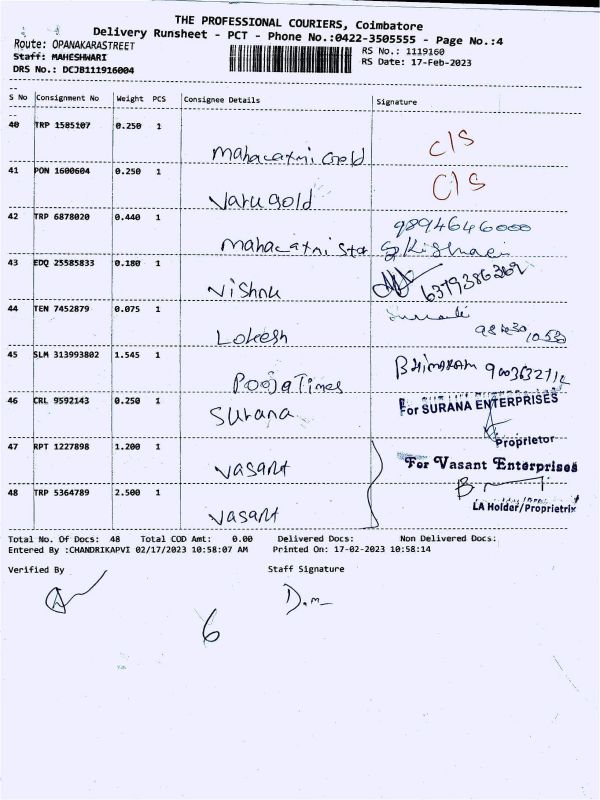 THE PROFESSIONAL COURIERS, Coimbatore
Delivery Runsheet - PCT - Phone No.:0422-3505555 - Page No.:4
Route: OPANAKARASTREET
RS No.: 1119160
Staff: MAHESHWARI
RS Date: 17-Feb-2023
DRS No.: DCJB111916004
S No Consignment No Weight PCS Consignee Details Signature
40 TRP 1585107 0.250 1 Mahalaxmi Gold C/S
41 PON 1600604 0.250 1 Varu gold C/S
42 TRP 6878020 0.440 1 Mahalaxmi 9894646000
43 EDQ 25585833 0.180 1 Vishnu 6379386369
44 TEN 7452879 0.075 1 Lokesh
45 SLM 313993802 1.545 1 Pooja Times
46 CRL 9592143 0.250 1 Surana For SURANA ENTERPRISES
Proprietor
47 RPT 1227898 1.200 1 Vasant For Vasant Enterprises
48 TRP 5364789 2.500 1 Vasant LA Holder/Proprietrix
Total No. Of Docs: 48 Total COD Amt: 0.00 Delivered Docs: Non Delivered Docs:
Entered By :CHANDRIKAPVI 02/17/2023 10:58:07 AM Printed On: 17-02-2023 10:58:14
Verified By Staff Signature
D.m
6